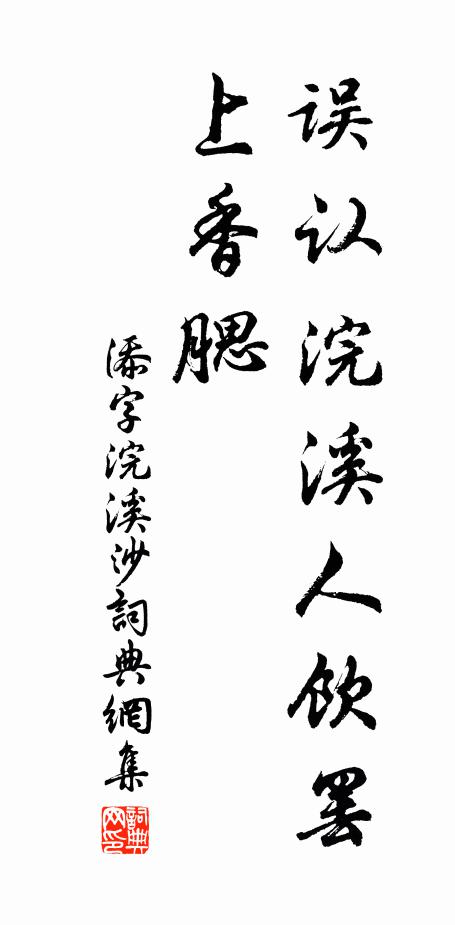 误认浣溪人饮罢
上香腮
添字浣溪沙詞典網集
詞典网印